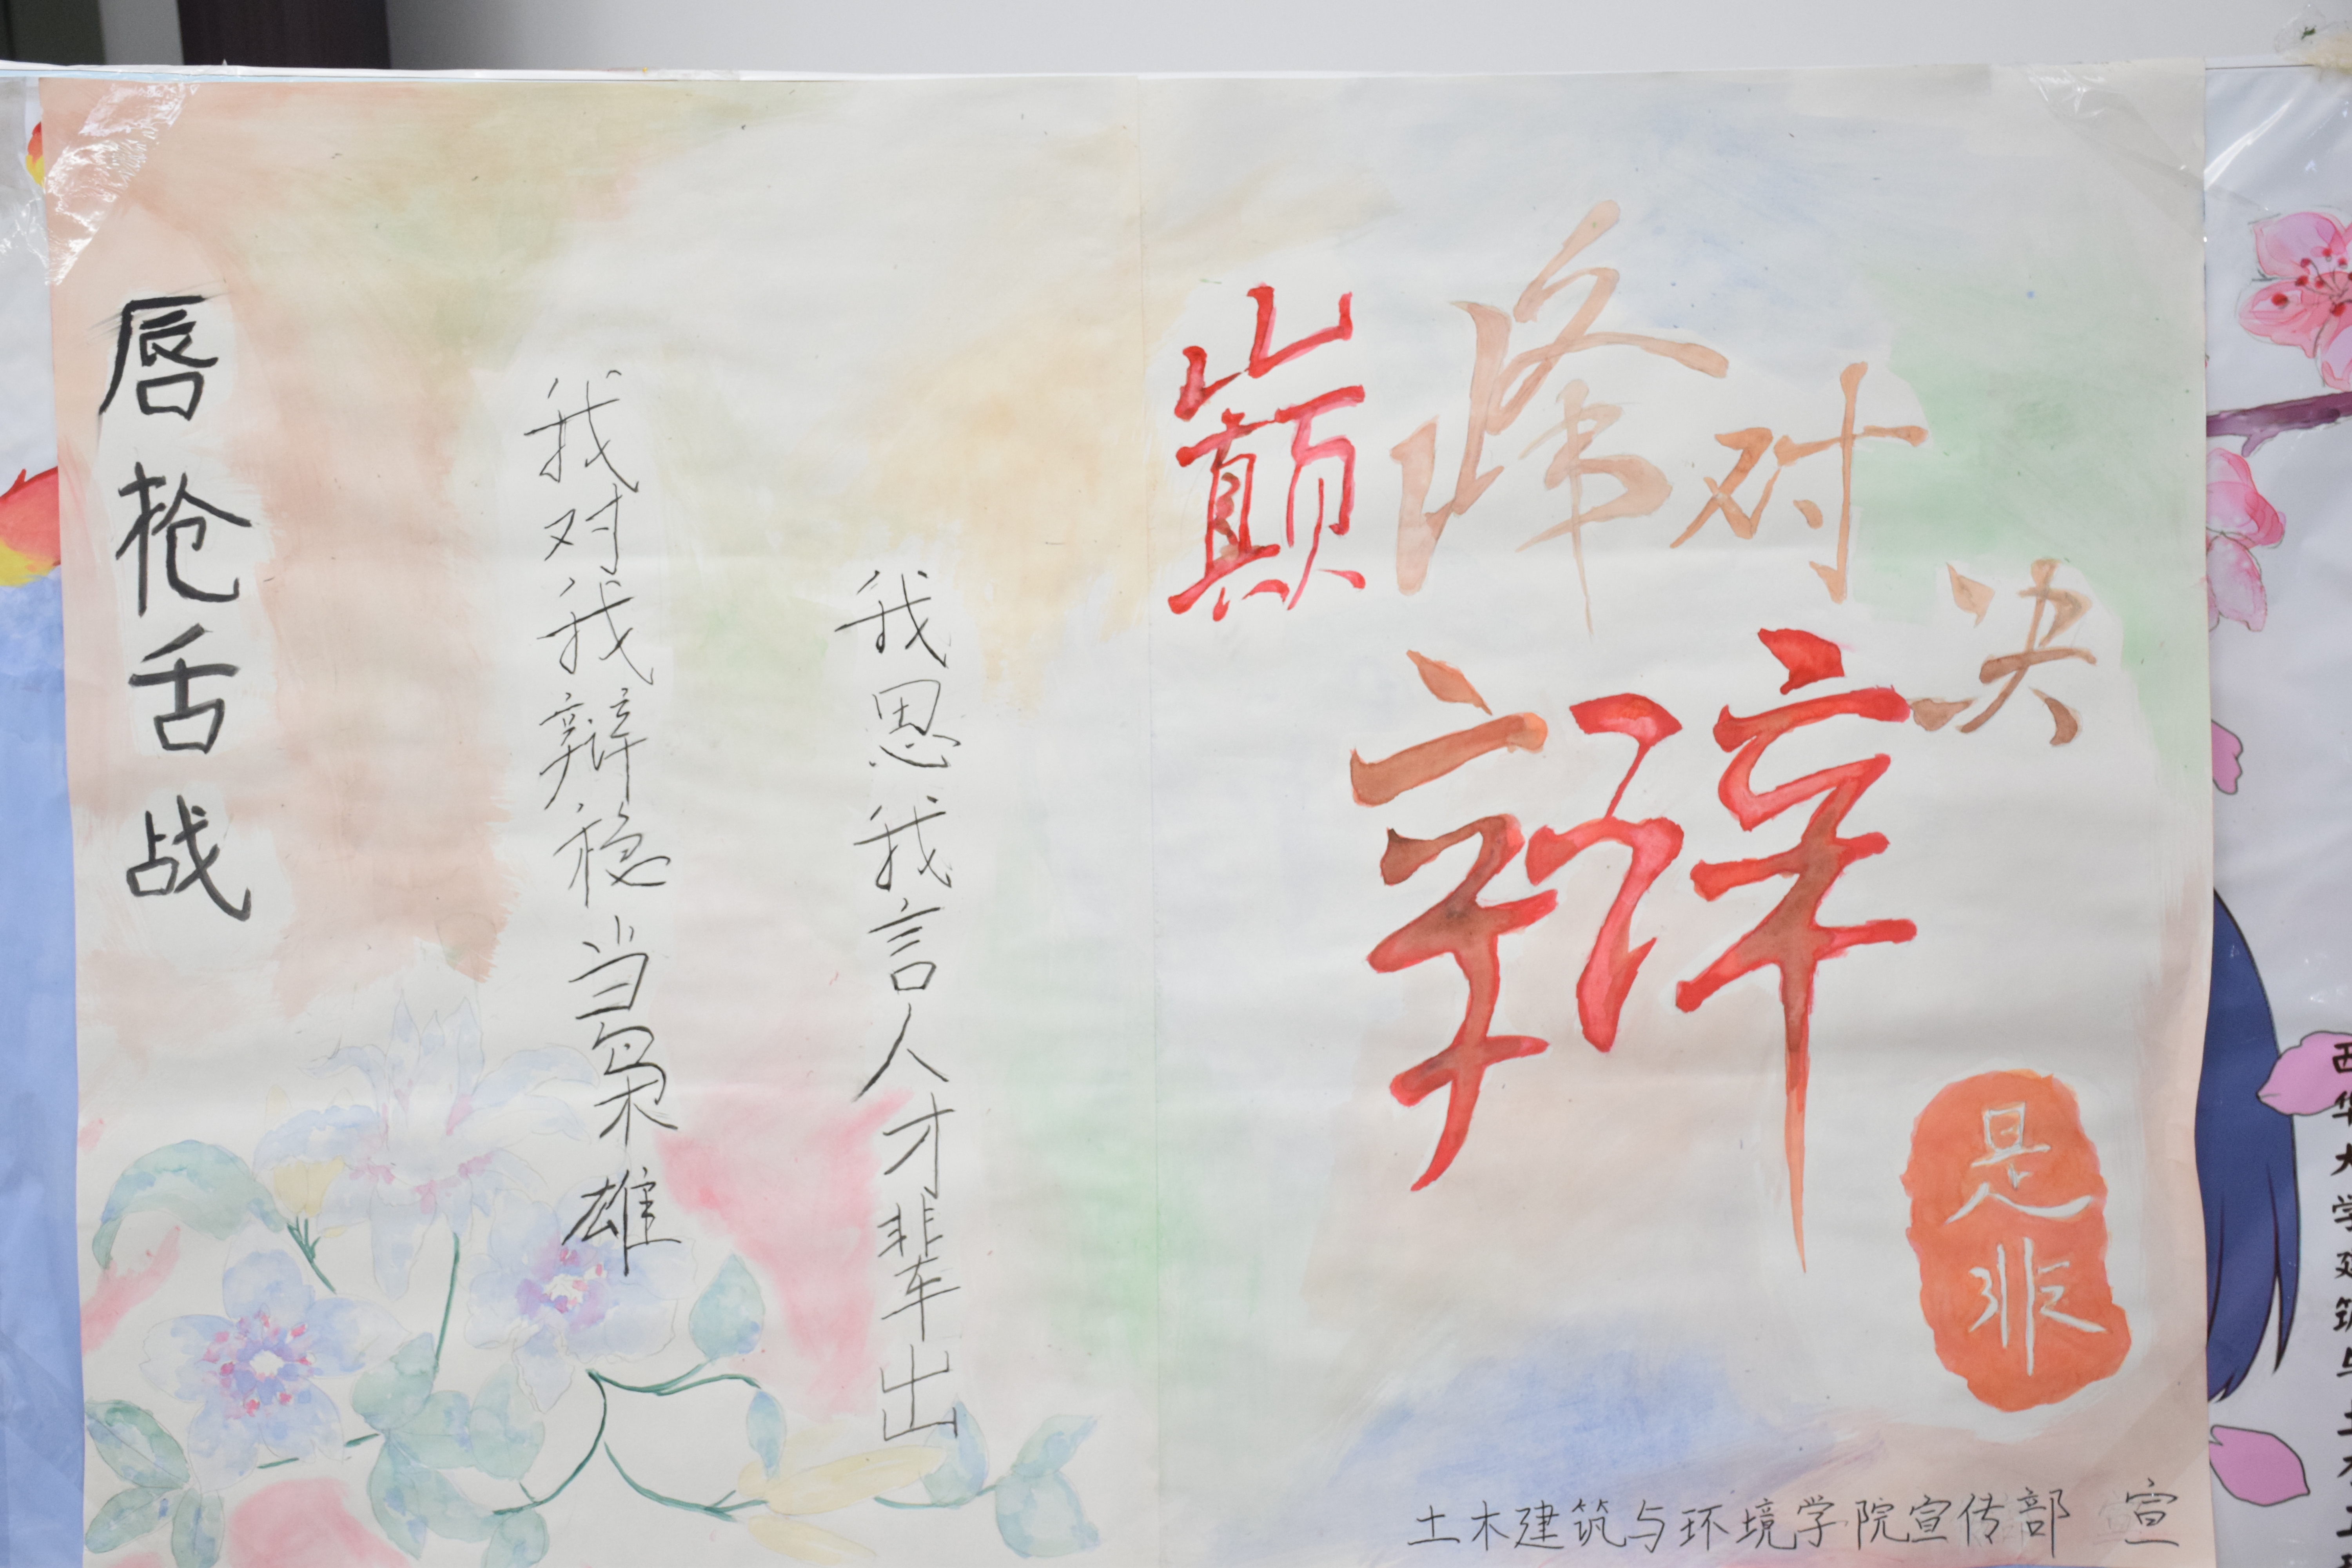 唇枪舌战
我对我辩稳当枭雄
我思我言人才辈出
巅峰对决
辩
是非
土木建筑与环境学院宣传部 宣
西华大学建筑与土木工